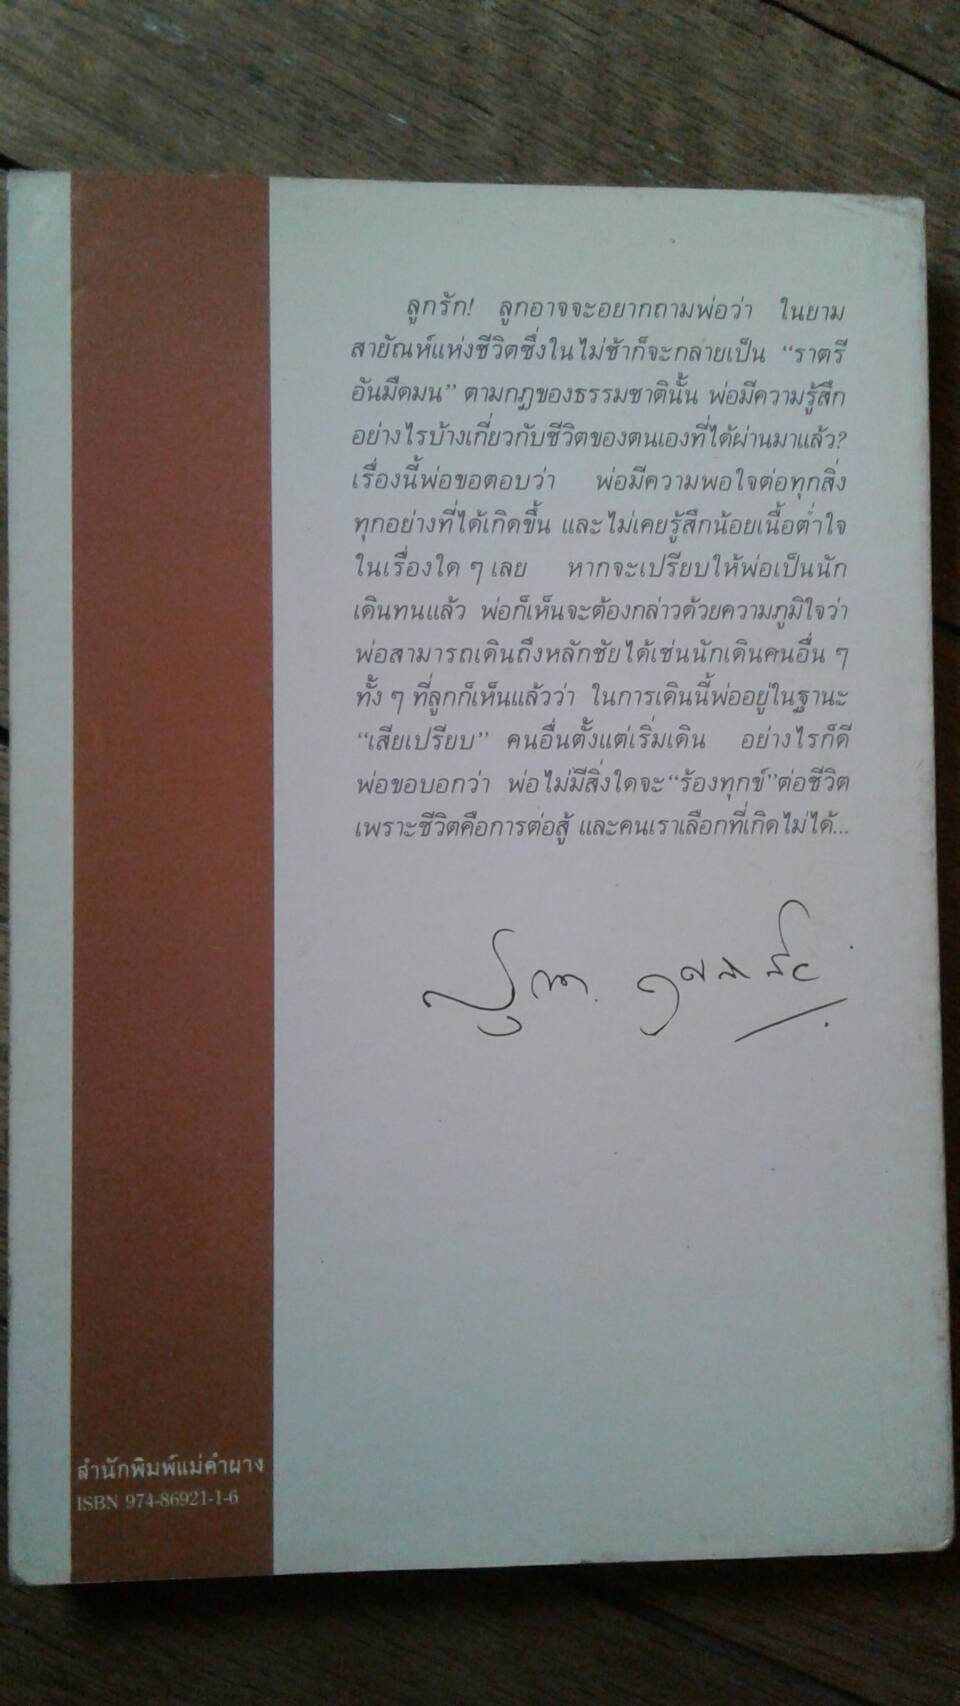 ลูกรัก! ลูกอาจจะอยากถามพ่อว่า ในยาม
สายัณห์แห่งชีวิตซึ่งในไม่ช้าก็จะกลายเป็น “ราตรี
อันมืดมน” ตามกฎของธรรมชาตินั้น พ่อมีความรู้สึก
อย่างไรบ้างเกี่ยวกับชีวิตของตนเองที่ได้ผ่านมาแล้ว?
เรื่องนี้พ่อขอตอบว่า พ่อมีความพอใจต่อทุกสิ่ง
ทุกอย่างที่ได้เกิดขึ้น และไม่เคยรู้สึกน้อยเนื้อต่ำใจ
ในเรื่องใด ๆ เลย หากจะเปรียบให้พ่อเป็นนัก
เดินทนแล้ว พ่อก็เห็นจะต้องกล่าวด้วยความภูมิใจว่า
พ่อสามารถเดินถึงหลักชัยได้เช่นนักเดินคนอื่น ๆ
ทั้ง ๆ ที่ลูกก็เห็นแล้วว่า ในการเดินนี้พ่ออยู่ในฐานะ
“เสียเปรียบ” คนอื่นตั้งแต่เริ่มเดิน อย่างไรก็ดี
พ่อขอบอกว่า พ่อไม่มีสิ่งใดจะ“ร้องทุกข์”ต่อชีวิต
เพราะชีวิตคือการต่อสู้ และคนเราเลือกที่เกิดไม่ได้...
สำนักพิมพ์แม่คำผาง
ISBN 974-86921-1-6